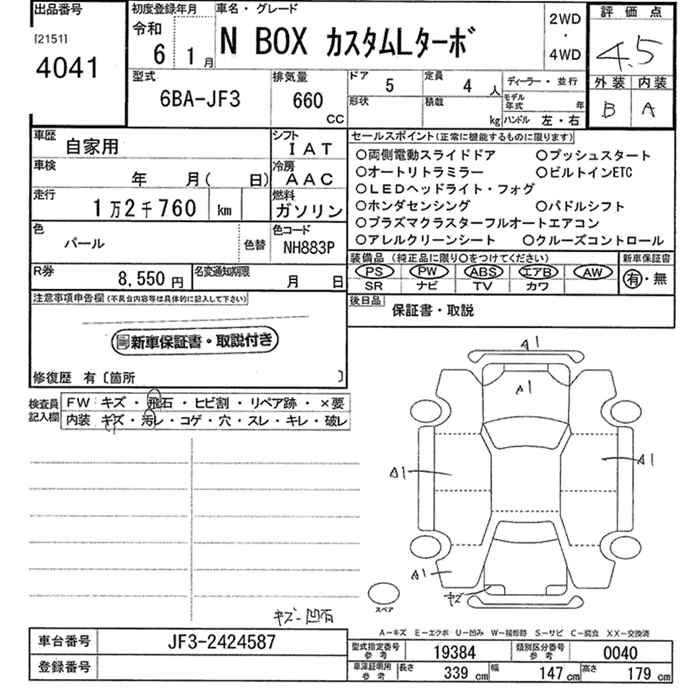 出品番号
[2151]
4041
初度登録年月
令和
6 1月
車名・グレード
N BOX カスタムLターボ
2WD
・
4WD
評価点
4.5
外装 内装
B A
型式
6BA-JF3
排気量
660
CC
ドア
5
定員
4人
ディーラー・並行
形状
積載
kg
モデル年式 年
ハンドル 左・右
車歴
自家用
シフト
IAT
車検
年 月( 日)
冷房
AAC
走行
1万2千760 km
燃料
ガソリン
色
パール
色替
色コード
NH883P
R券
8,550円
名変通知期限
月 日
セールスポイント(正常に機能するものに限ります)
○両側電動スライドドア ○プッシュスタート
○オートリトラミラー ○ビルトインETC
○LEDヘッドライト・フォグ
○ホンダセンシング ○パドルシフト
○プラズマクラスターフルオートエアコン
○アレルクリーンシート ○クルーズコントロール
装備品(純正品に限り○をつけてください)
PS PW ABS エアB AW
SR ナビ TV カワ
新車保証書
有・無
後日品
保証書・取説
注意事項申告欄(不具合内容等は具体的に記入して下さい)
新車保証書・取説付き
修復歴 有〔箇所 〕
検査員記入欄
FW キズ・飛石・ヒビ割・リペア跡・×要
内装 キズ・汚レ・コゲ・穴・スレ・キレ・破レ
A1
A1
A1
A1
A1
キズ
キズ-凹有
スペア
A-キズ E-エクボ U-凹み W-補修跡 S-サビ C-腐食 XX-交換済
車台番号
JF3-2424587
登録番号
型式指定番号 参考
19384
類別区分番号 参考
0040
車庫証明用 参考
長さ 339 cm
幅 147 cm
高さ 179 cm